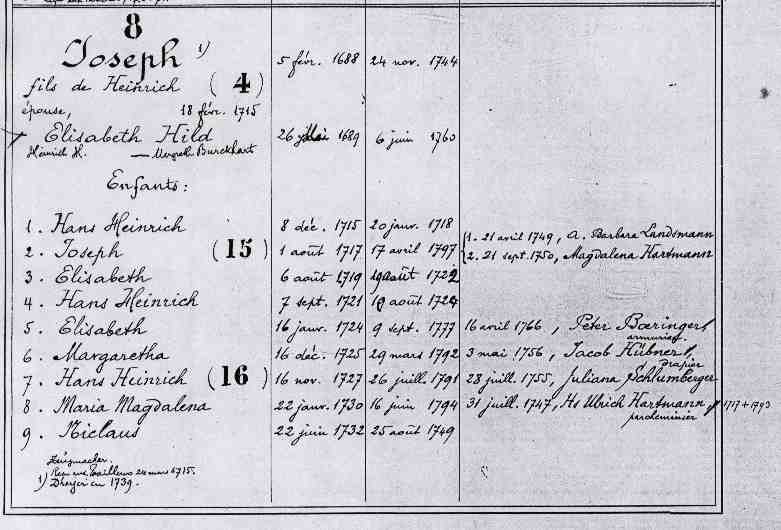 8
Joseph 1) 5 févr. 1688 24 nov. 1744
fils de Heinrich (4)
épouse, 18 févr. 1715
Elisabeth Hild 26 Mai 1689 6 juin 1760
Heinrich H. — Margreth Burckhart
Enfants:
1. Hans Heinrich 8 déc. 1715 20 janv. 1718
2. Joseph (15) 1 août 1717 17 avril 1797 1. 21 avril 1749, A. Barbara Landsmann
2. 21 sept. 1750, Magdalena Hartmann
3. Elisabeth 6 août 1719 19 août 1722
4. Hans Heinrich 7 sept. 1721 août 1724
5. Elisabeth 16 janv. 1724 9 sept. 1777 16 avril 1766, Péter Bœringer,
armurier
6. Margaretha 16 déc. 1725 29 mars 1792 3 mai 1756, Jacob Hübner,
drapier
7. Hans Heinrich (16) 16 nov. 1727 26 juill. 1791 28 juill. 1755, Juliana Schlumberger
8. Maria Magdalena 22 janv. 1730 16 juin 1794 31 juill. 1747, Hs Ulrich Hartmann, 1717 + 1793
parcheminier
9. Niclaus 22 juin 1732 25 août 1749
Zeugmacher.
1) Reçu aux Tailleurs 24 mars 1715.
Dreyer en 1739.